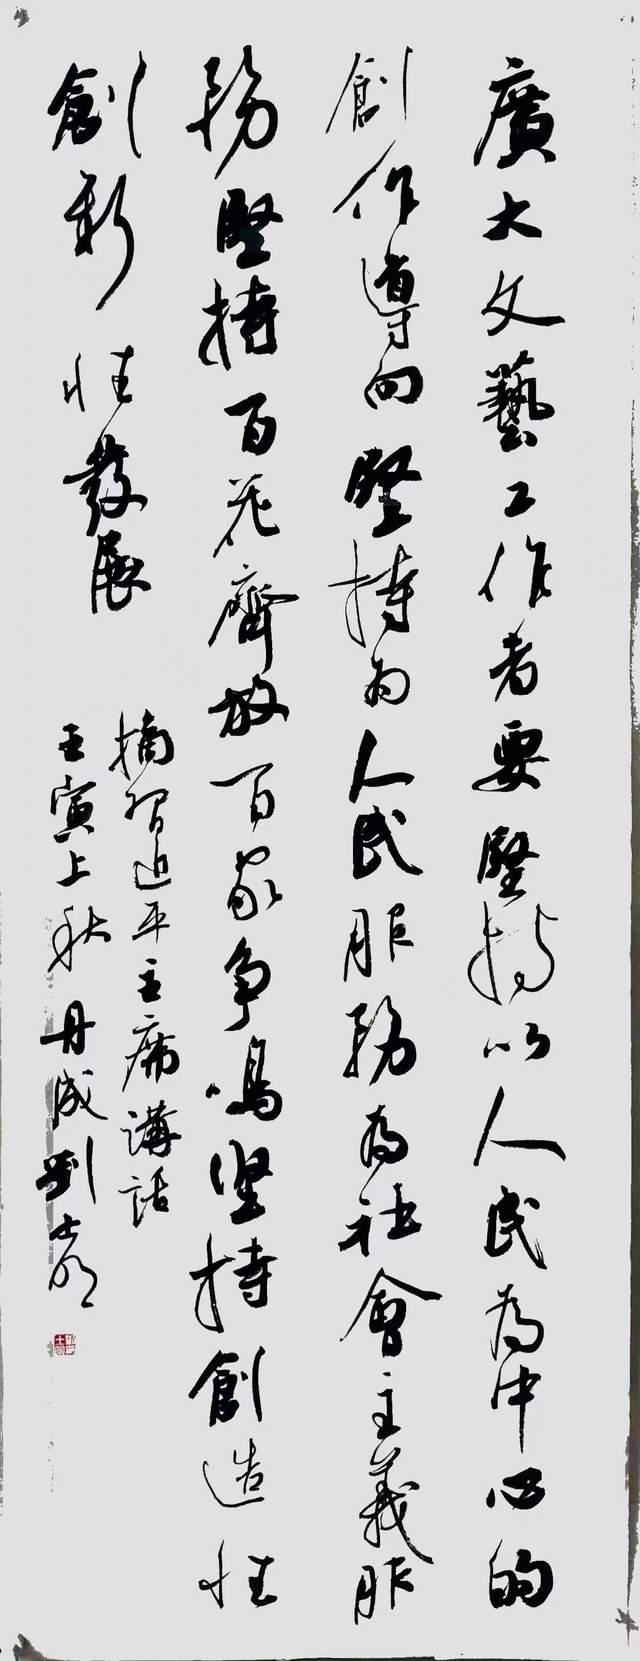 廣大文藝工作者要堅持以人民為中心的
創作導向堅持為人民服務為社會主義服
務堅持百花齊放百家争鳴坚持創造性
創新性發展
摘習近平主席講話
壬寅上秋丹成劉士明